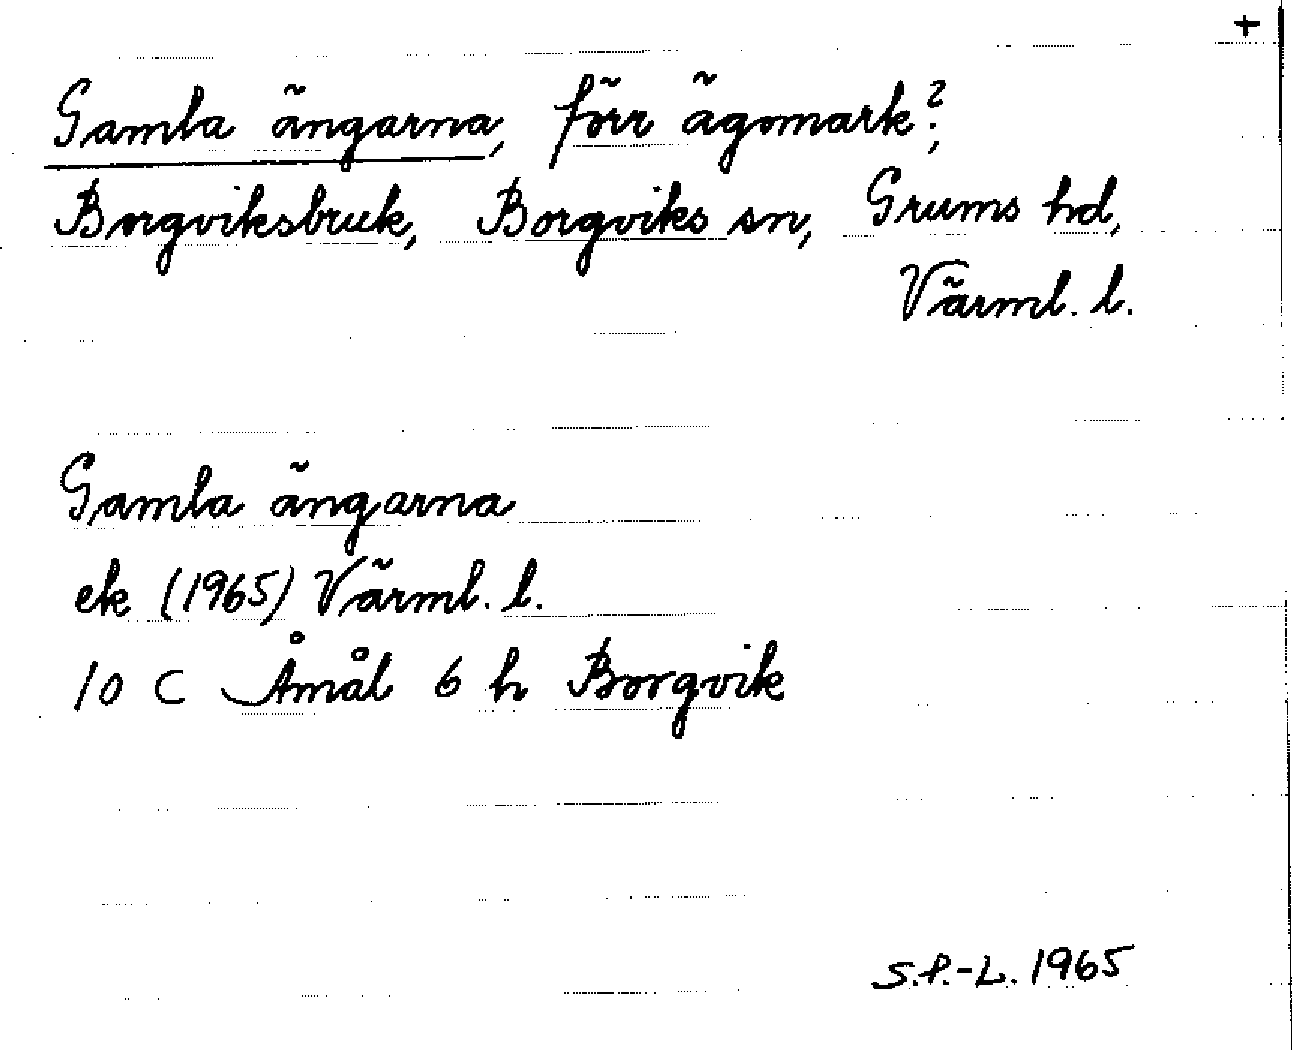 +
Gamla ängarna, förr ägomark?,
Borgviksbruk, Borgviks sn, Grums hd,
Värml. l.
Gamla ängarna
ek (1965) Värml. l.
10 C Åmål 6 h Borgvik
S.P.-L. 1965